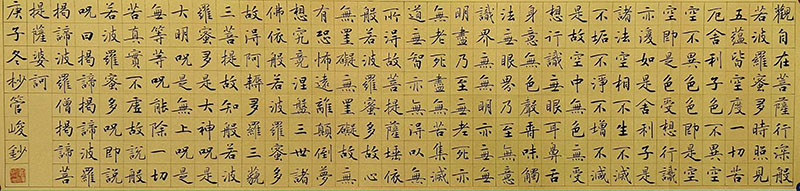 觀自在菩薩行深般
若波羅蜜多時照見
五蘊皆空度一切苦
厄舍利子色不異空
空不異色色即是空
空即是色受想行識
亦復如是舍利子是
諸法空相不生不滅
不垢不淨不增不減
是故空中無色無受
想行識無眼耳鼻舌
身意無色聲香味觸
法無眼界乃至無意
識界無無明亦無無
明盡乃至無老死亦
無老死盡無苦集滅
道無智亦無得以無
所得故菩提薩埵依
般若波羅蜜多故心
無罣礙無罣礙故無
有恐怖遠離顛倒夢
想究竟涅槃三世諸
佛依般若波羅蜜多
故得阿耨多羅三藐
三菩提故知般若波
羅蜜多是大神呪是
大明呪是無上呪是
無等等呪能除一切
苦真實不虛故說般
若波羅蜜多呪即說
呪曰揭諦揭諦波羅
揭諦波羅僧揭諦菩
提薩婆訶
庚子冬杪管峻鈔